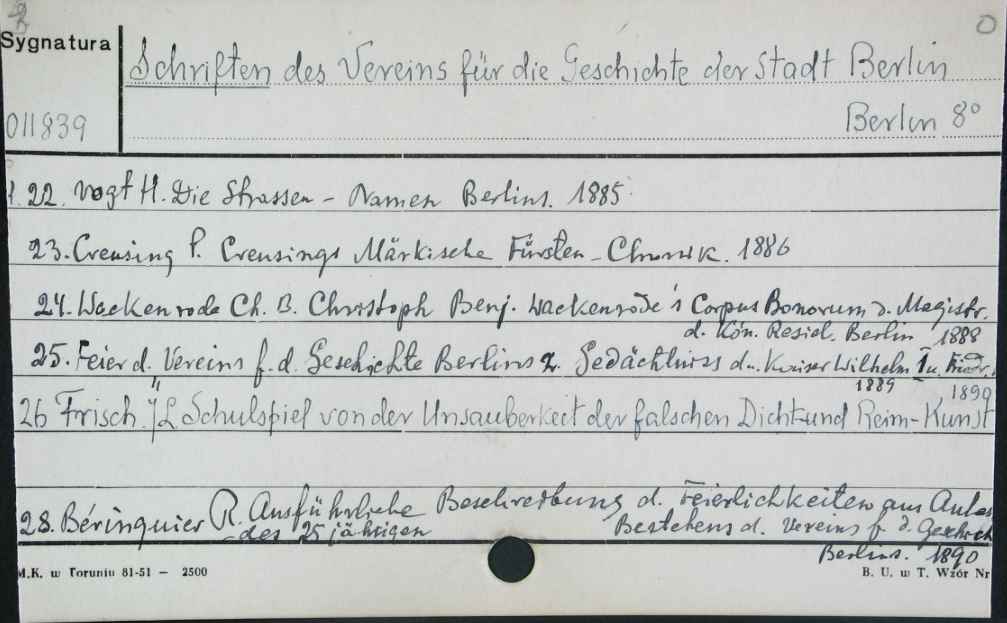 Sygnatura
Schriften des Vereins für die Geschichte der Stadt Berlin
011839
Berlin 8°
22. Vogt H. Die Strassen - Namen Berlins. 1885
23. Creusing P. Creusings Märkische Fürsten - Chronik. 1886
24. Wackenrode Ch. B. Christoph Benj. Wackenrode's Corpus Bonorum d. Magistr.
d. Kön. Resid. Berlin 1888
25. Feier d. Vereins f. d. Geschichte Berlins z. Gedächtniss d. Kaiser Wilhelm I u. Friedr.
1889
1890
26 Frisch J L Schulspiel von der Unsauberkeit der falschen Dicht und Reim-Kunst
28. Béringuier R. Ausführliche Beschreibung d. Feierlichkeiten aus Anlas
des 25 jährigen Bestehens d. Vereins f. d. Geschich
Berlins. 1890
M.K. w Toruniu 81-51 - 2500
B. U. w T. Wzór Nr